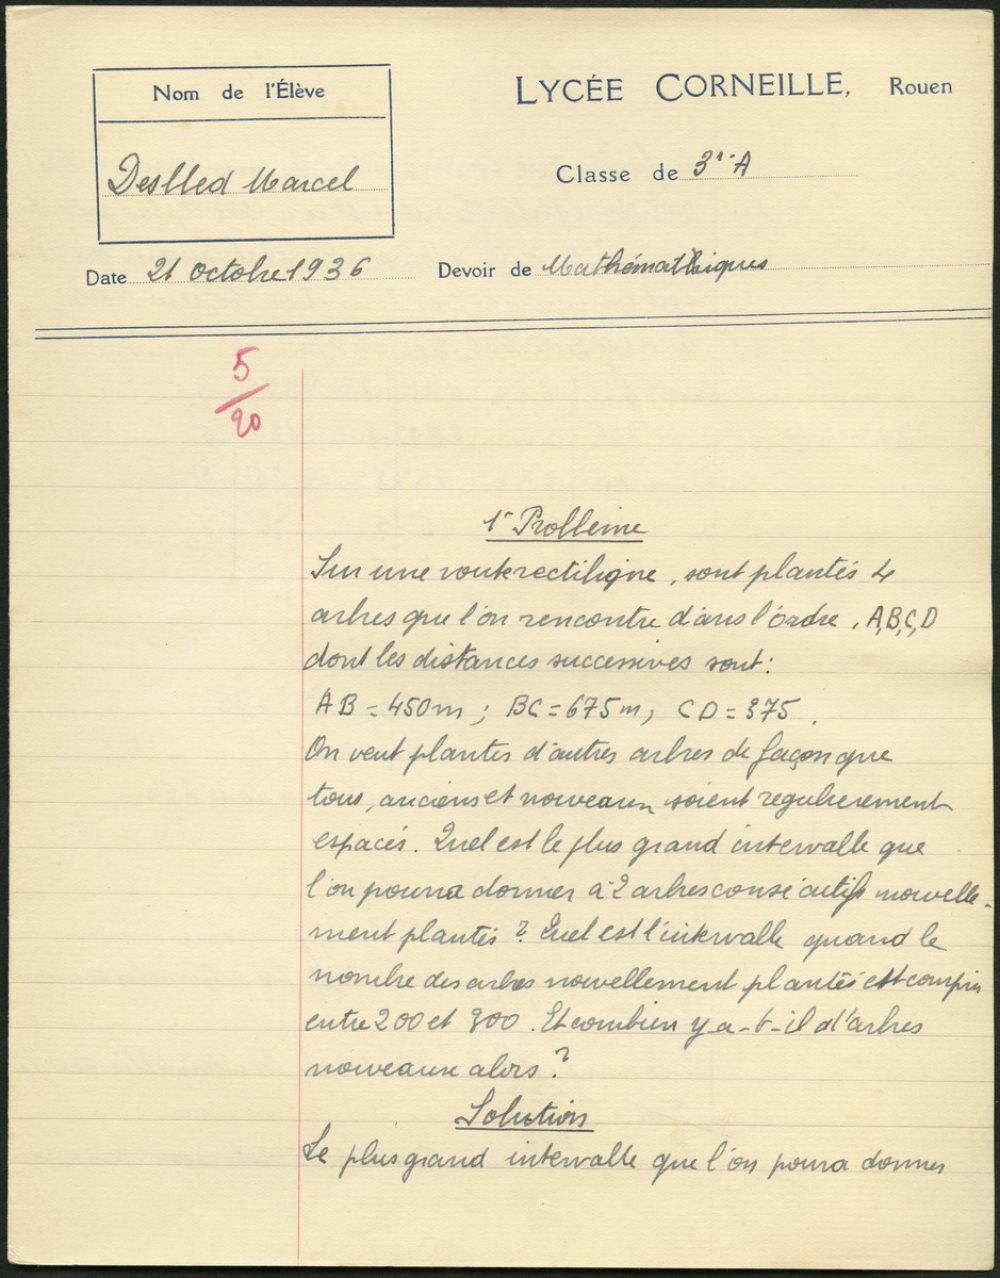 Nom de l'Élève
LYCÉE CORNEILLE, Rouen
Marcel
Classe de 3e A
Date 21 octobre 1936
Devoir de Mathémathiques
5/20
1er Problème
Sur une route rectiligne, sont plantés 4
arbres que l'on rencontre dans l'ordre, A,B,C,D
dont les distances successives sont:
AB = 450m ; BC = 675m, CD = 375.
On veut planter d'autres arbres de façon que
tous, anciens et nouveaux soient regulierement
espacés. Quel est le plus grand intervalle que
l'on pourra donner à 2 arbres consécutifs nouvelle-
ment plantés ? Quel est l'intervalle quand le
nombre des arbres nouvellement plantés est compris
entre 200 et 300. Et combien y a-t-il d'arbres
nouveaux alors ?
Solution
Le plus grand intervalle que l'on poura donner